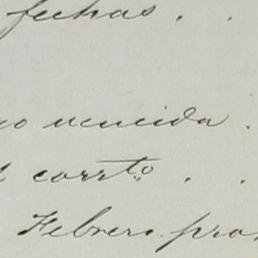 fechas . .
vencida .
corrto . .
Febrero pro